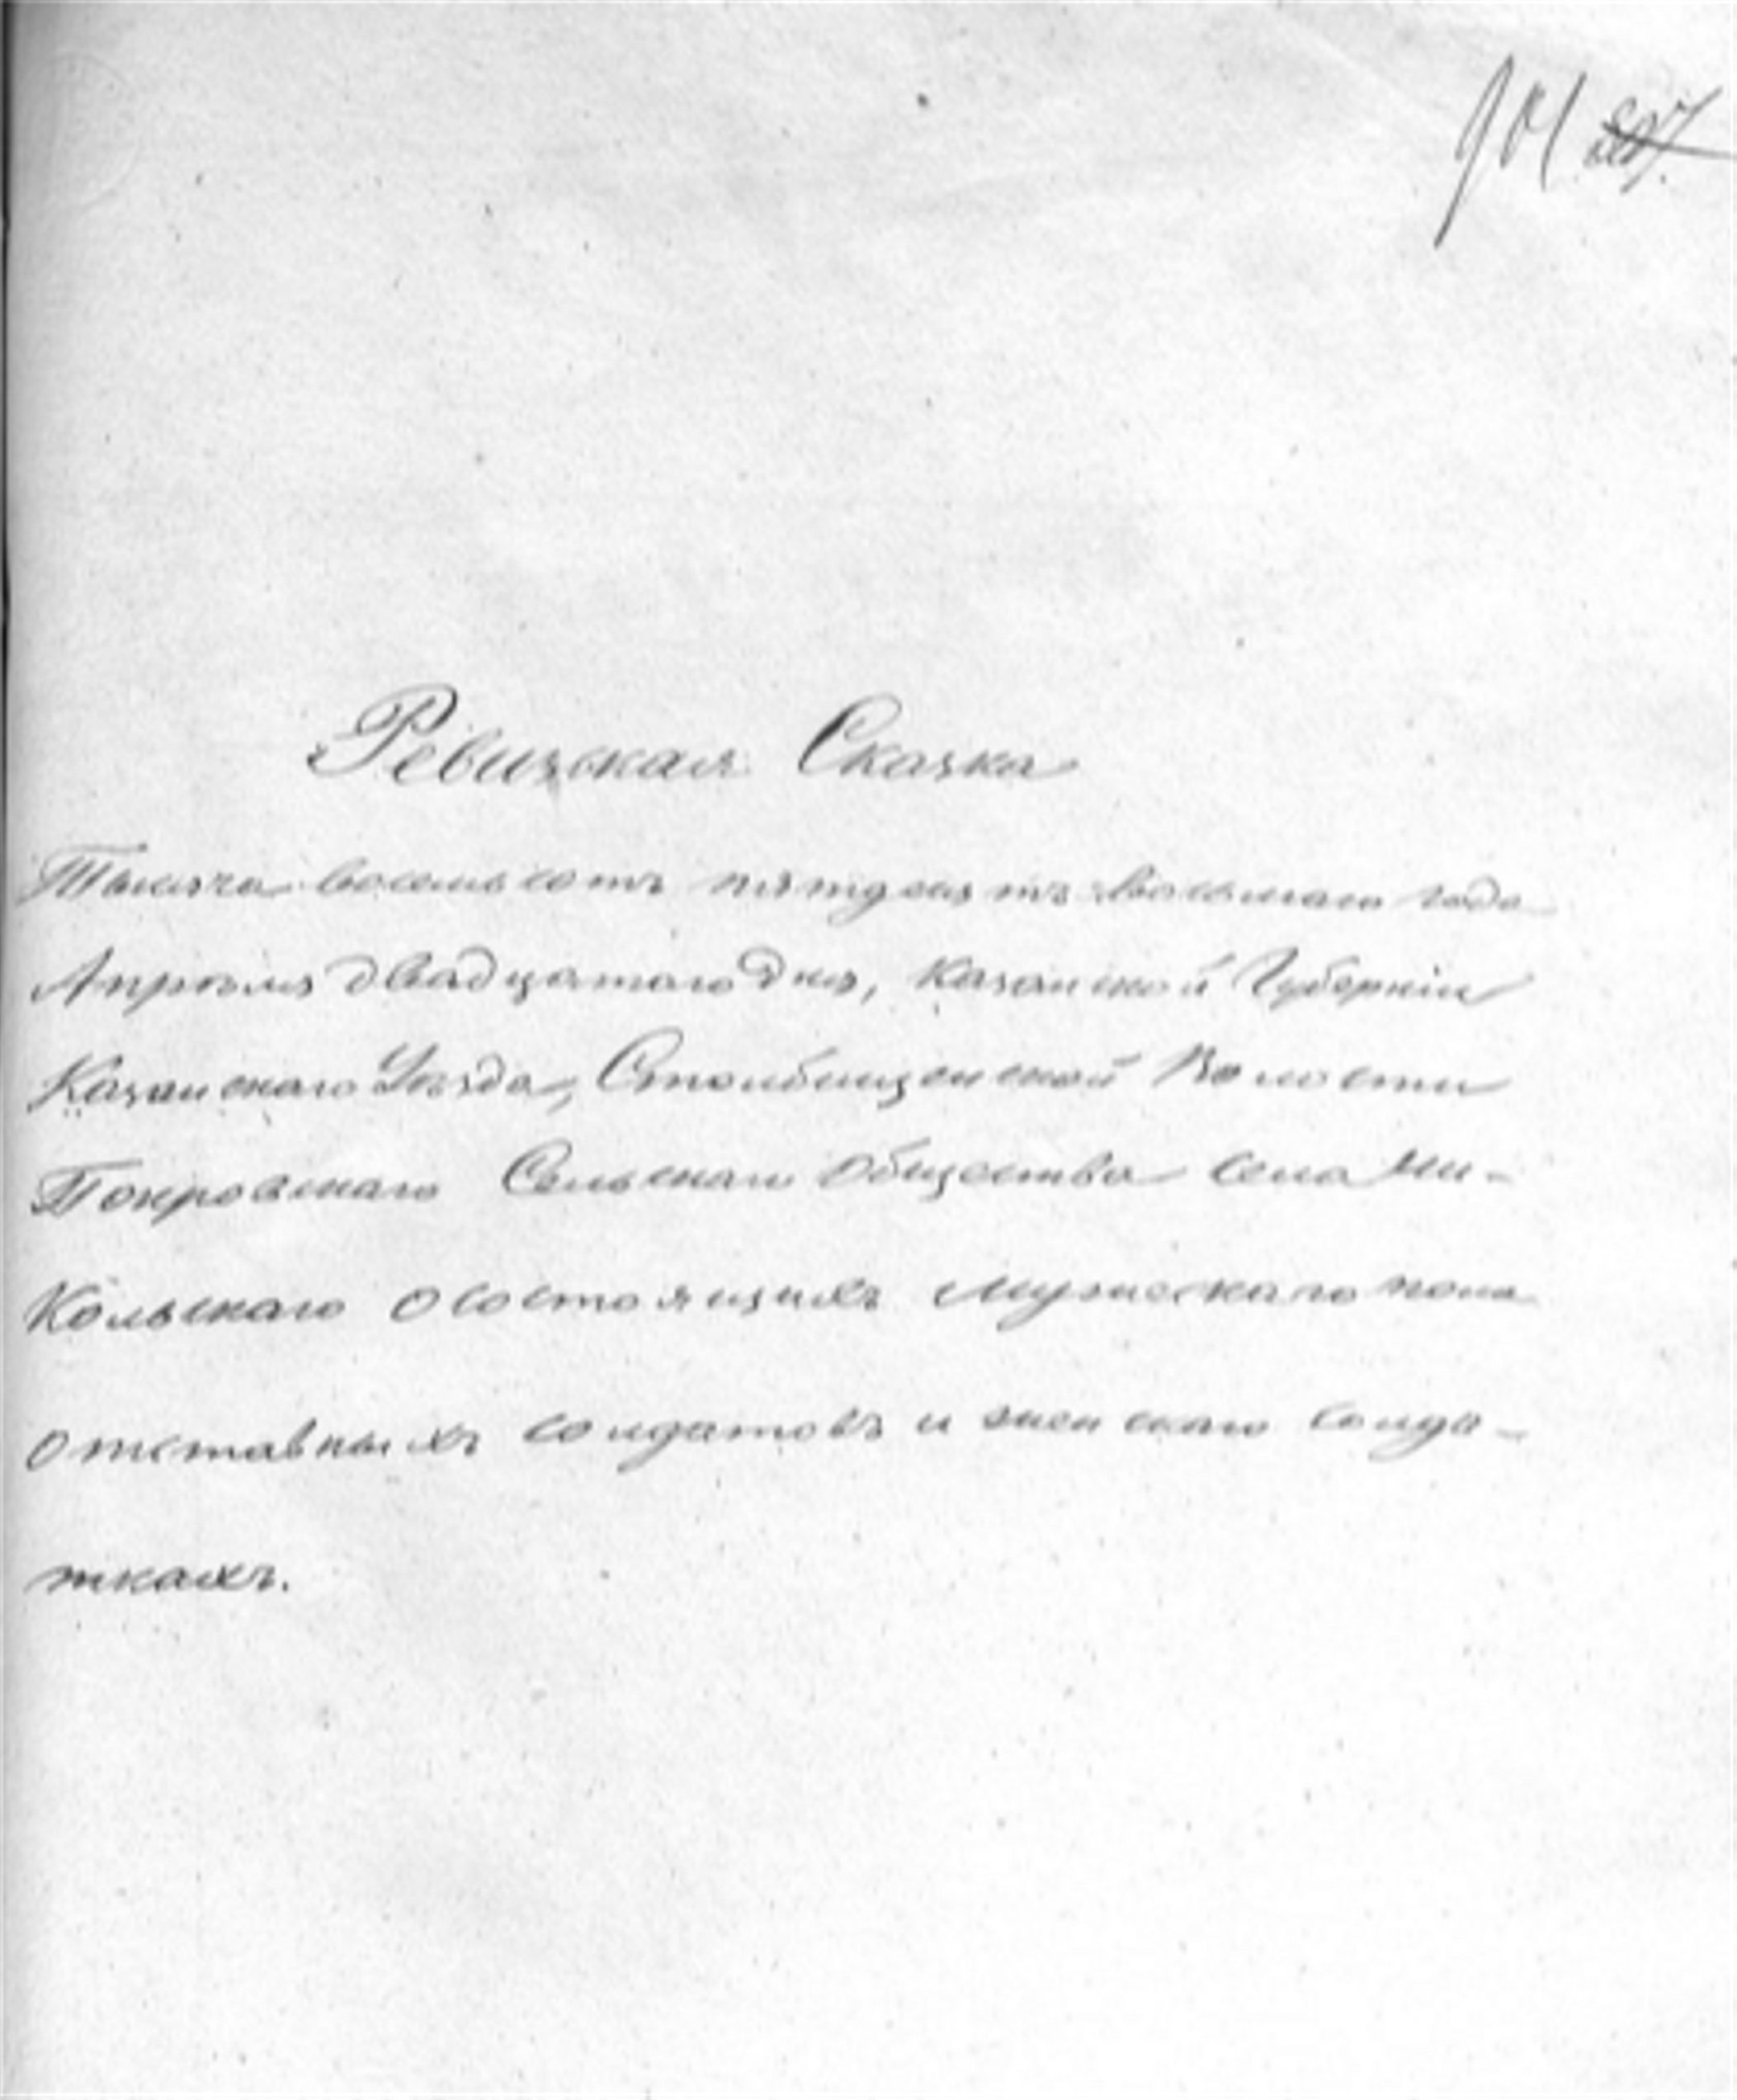 901
Ревизская Сказка
Тысяча восемьсотъ пятдесятъ восьмаго года
Апрѣля двадцатаго дня, Казанской Губерніи
Казанскаго Уѣзда, Столбищенской Волости
Покровскаго Сельскаго Общества села Ни-
Кольскаго о состоящихъ мужескаго пола
отставныхъ солдатовъ и женскаго солда-
ткахъ.